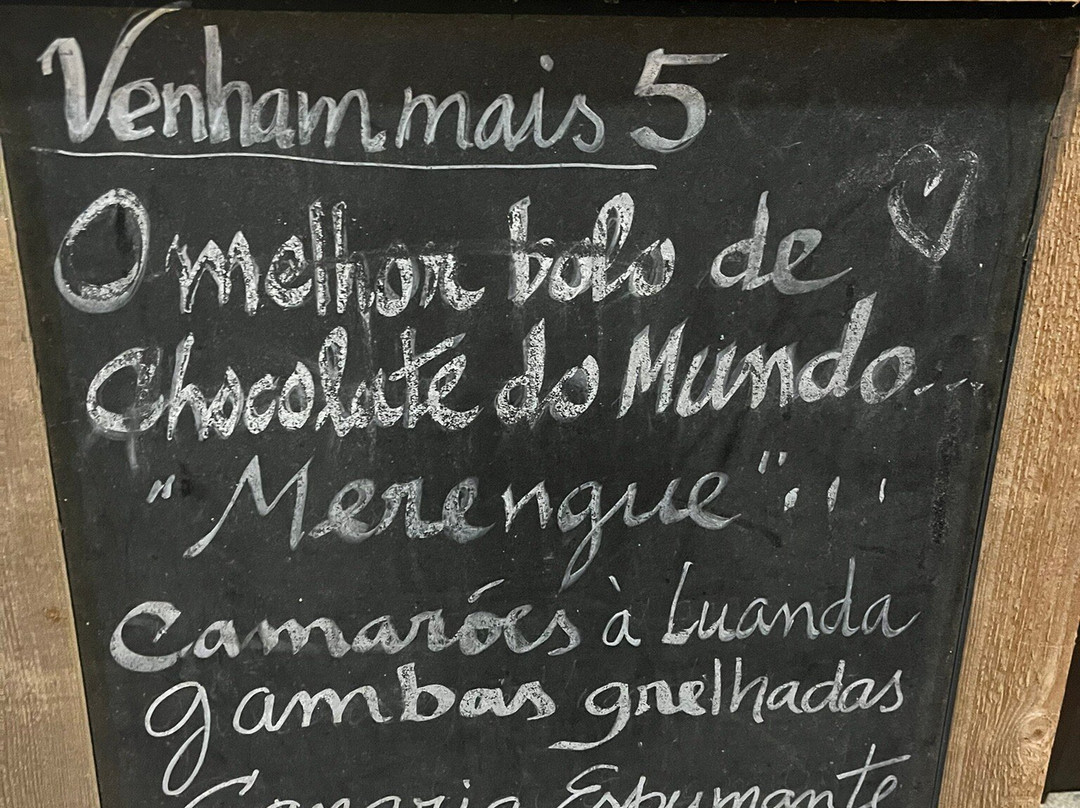 Venham mais 5
O melhor bolo de
Chocolate do Mundo...
"Merengue"...
Camarões à Luanda
gambas grelhadas
Espumante